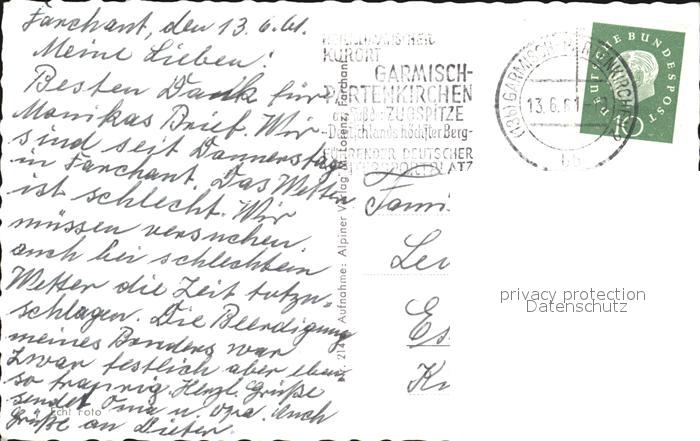 Farchant, den 13.6.61.
Meine Lieben!
Besten Dank für
Monikas Brief. Wir
sind seit Donnerstag
in Farchant. Das Wetter
ist schlecht. Wir
müssen versuchen
auch bei schlechtem
Wetter die Zeit totzu-
schlagen. Die Beerdigung
meines Bruders war
zwar festlich aber eben
so traurig. Herzl. Grüße
sendet Oma u. Opa. Auch
Grüße an Dieter.
Echt Foto
Nr. 214 Aufnahme: Alpiner Verlag M. Lorenz, Farchant
KURORT
GARMISCH-
PARTENKIRCHEN
ZUGSPITZE
-Deutschlands höchster Berg-
FÜHRENDER DEUTSCHER
WINTERSPORTPLATZ
(13b) GARMISCH-PARTENKIRCHEN
13.6.61
bb
DEUTSCHE BUNDESPOST
10
Fami
Lev
Es
Kr
privacy protection
Datenschutz